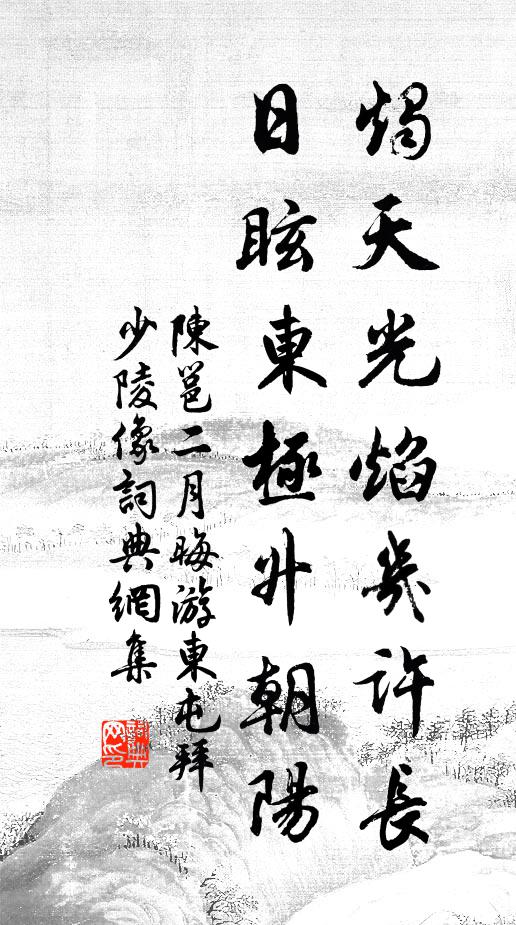 燭天光焰幾許長
目眩東極升朝陽
陳邕二月晦游東屯拜
少陵像詞典網集